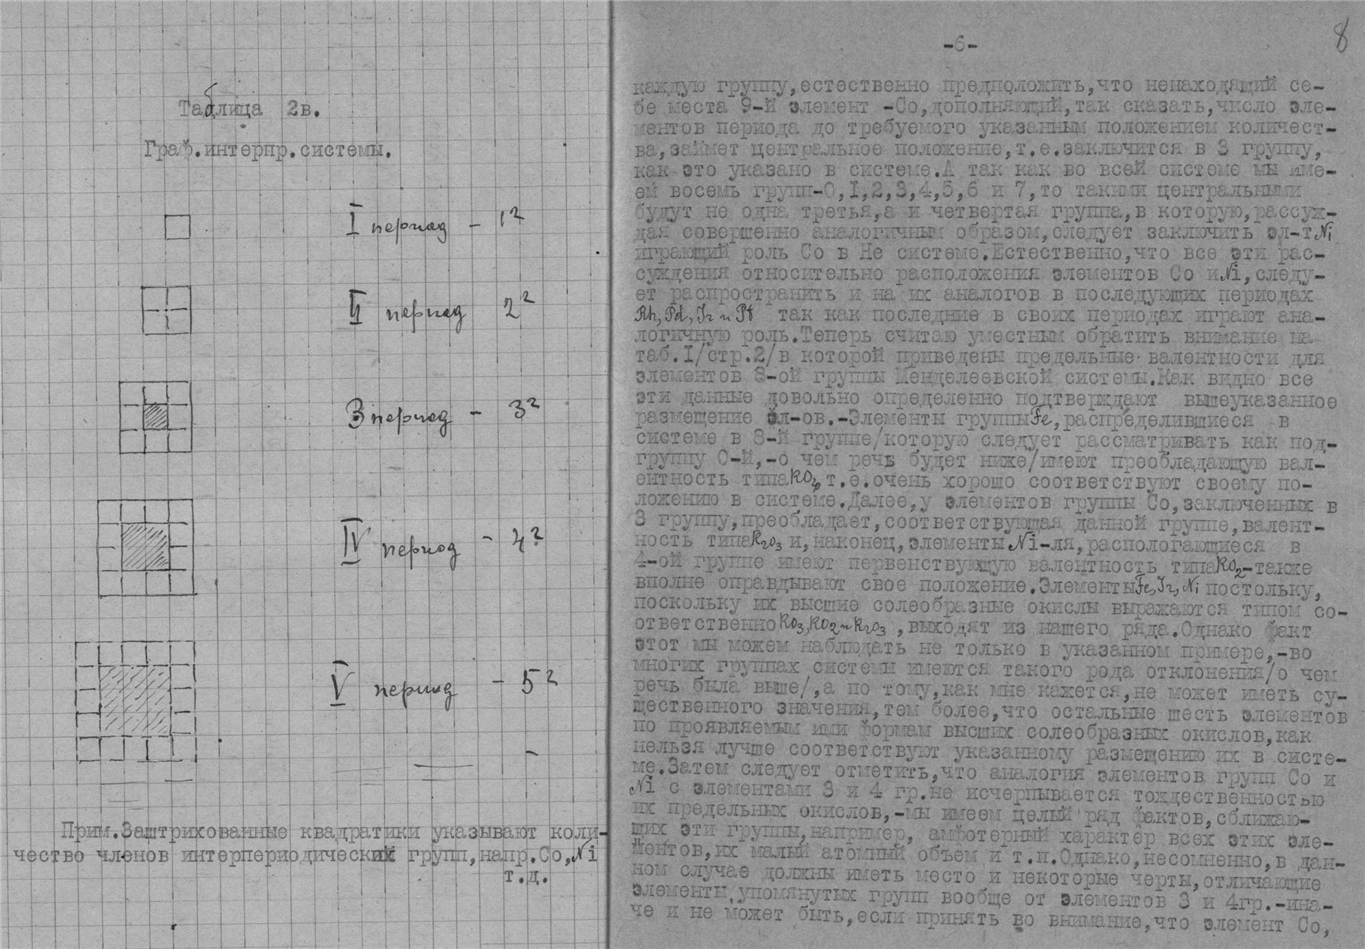 Таблица 2в.
Граф.интерпр.системы.
I период - 1²
II период 2²
3 период - 3²
IV период - 4²
V период - 5²
Прим.Заштрихованные квадратики указывают коли-
чество членов интерпериодический групп,напр.Co,Ni
т.д.
8
-6-
каждую группу,естественно предположить,что ненаходящий се-
бе места 9-й элемент -Со,дополняющий,так сказать,число эле-
ментов периода до требуемого указанным положением количест-
ва,займет центральное положение,т.е.заключится в 3 группу,
как это указано в системе.А так как во всей системе мы име-
ем восемь групп-0,1,2,3,4,5,6 и 7,то такими центральными
будут не одна третья,а и четвертая группа,в которую,рассуж-
дая совершенно аналогичным образом,следует заключить эл-т Ni
играющий роль Со в Не системе.Естественно,что все эти рас-
суждения относительно расположения элементов Со и Ni,следу-
ет распространить и на их аналогов в последующих периодах
Rh,Pd,Ir и Pt так как последние в своих периодах играют ана-
логичную роль.Теперь считаю уместным обратить внимание на
таб.I/стр.2/в которой приведены предельные валентности для
элементов 8-ой группы Менделеевской системы.Как видно все
эти данные довольно определенно подтверждают вышеуказанное
размещение эл-ов.-Элементы группы Fe,распределившиеся в
системе в 8-й группе/которую следует рассматривать как под-
группу 0-й,-о чем речь будет ниже/имеют преобладающую вал-
ентность типа RO₄,т.е.очень хорошо соответствуют своему по-
ложению в системе.Далее,у элементов группы Со,заключенных в
3 группу,преобладает,соответствующая данной группе,валент-
ность типа R₂O₃ и,наконец,элементы Ni-ля,распологающиеся в
4-ой группе имеют первенствующую валентность типа RO₂-также
вполне оправдывают свое положение.Элементы Fe,Ir,Ni постольку,
поскольку их высшие солеобразные окислы выражаются типом со-
ответственно RO₃,RO₂ и R₂O₃,выходят из нашего ряда.Однако факт
этот мы можем наблюдать не только в указанном примере,-во
многих группах системы имеются такого рода отклонения/о чем
речь была выше/,а по тому,как мне кажется,не может иметь су-
щественного значения,тем более,что остальные шесть элементов
по проявляемым ими формам высших солеобразных окислов,как
нельзя лучше соответствуют указанному размещению их в систе-
ме.Затем следует отметить,что аналогия элементов групп Со и
Ni с элементами 3 и 4 гр.не исчерпывается тождественностью
их предельных окислов,-мы имеем целый ряд фактов,сближаю-
щих эти группы,например, амфотерный характер всех этих эле-
ментов,их малый атомный объем и т.п.Однако,несомненно,в дан-
ном случае должны иметь место и некоторые черты,отличающие
элементы,упомянутых групп вообще от элементов 3 и 4гр.-ина-
че и не может быть,если принять во внимание,что элемент Со,